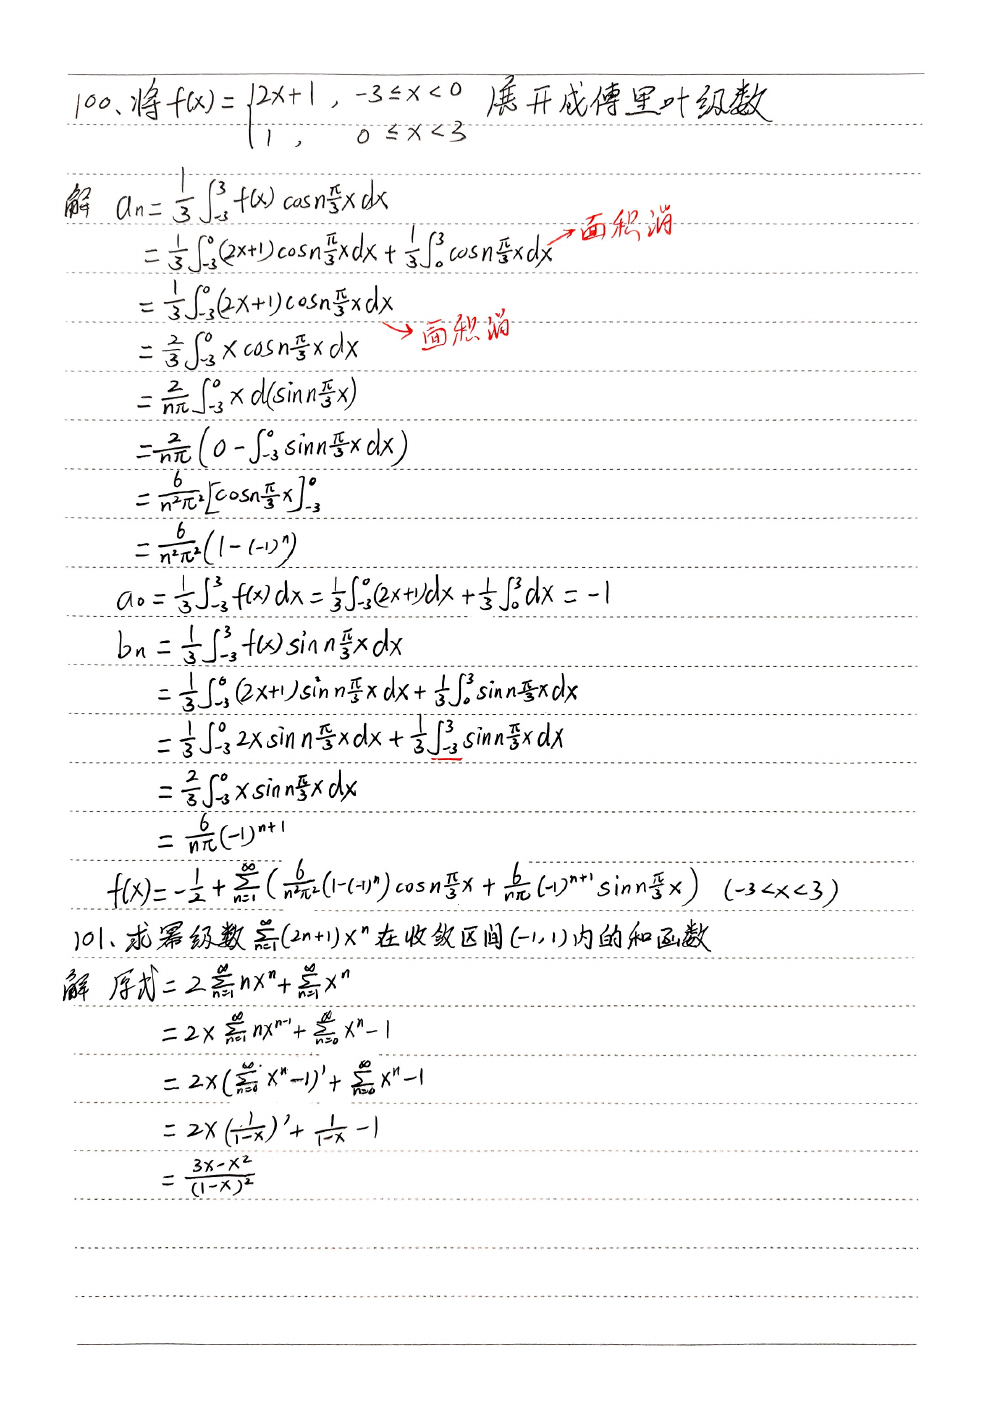 100、将 f(x) = { 2x+1 , -3≤x<0 展开成傅里叶级数
1 , 0≤x<3
解 aₙ = 1/3 ∫₋₃³ f(x) cosn π/3 x dx
= 1/3 ∫₋₃⁰ (2x+1) cosn π/3 x dx + 1/3 ∫₀³ cosn π/3 x dx → 面积消
= 1/3 ∫₋₃⁰ (2x+1) cosn π/3 x dx
→ 面积消
= 2/3 ∫₋₃⁰ x cosn π/3 x dx
= 2/nπ ∫₋₃⁰ x d(sinn π/3 x)
= 2/nπ (0 - ∫₋₃⁰ sinn π/3 x dx)
= 6/n²π² [cosn π/3 x]₋₃⁰
= 6/n²π² (1-(-1)ⁿ)
a₀ = 1/3 ∫₋₃³ f(x) dx = 1/3 ∫₋₃⁰ (2x+1)dx + 1/3 ∫₀³ dx = -1
bn = 1/3 ∫₋₃³ f(x) sin n π/3 x dx
= 1/3 ∫₋₃⁰ (2x+1) sin n π/3 x dx + 1/3 ∫₀³ sinn π/3 x dx
= 1/3 ∫₋₃⁰ 2x sin n π/3 x dx + 1/3 ∫₋₃³ sinn π/3 x dx
= 2/3 ∫₋₃⁰ x sinn π/3 x dx
= 6/nπ (-1)ⁿ⁺¹
f(x) = -1/2 + ∑ₙ₌₁^∞ ( 6/n²π² (1-(-1)ⁿ) cosn π/3 x + 6/nπ (-1)ⁿ⁺¹ sinn π/3 x ) (-3<x<3)
101、求幂级数 ∑ₙ₌₁^∞ (2n+1)xⁿ 在收敛区间(-1,1)内的和函数
解 原式 = 2 ∑ₙ₌₁^∞ nxⁿ + ∑ₙ₌₁^∞ xⁿ
= 2x ∑ₙ₌₁^∞ nxⁿ⁻¹ + ∑ₙ₌₀^∞ xⁿ - 1
= 2x ( ∑ₙ₌₀^∞ xⁿ - 1 )' + ∑ₙ₌₀^∞ xⁿ - 1
= 2x ( 1/(1-x) )' + 1/(1-x) - 1
= (3x-x²)/(1-x)²